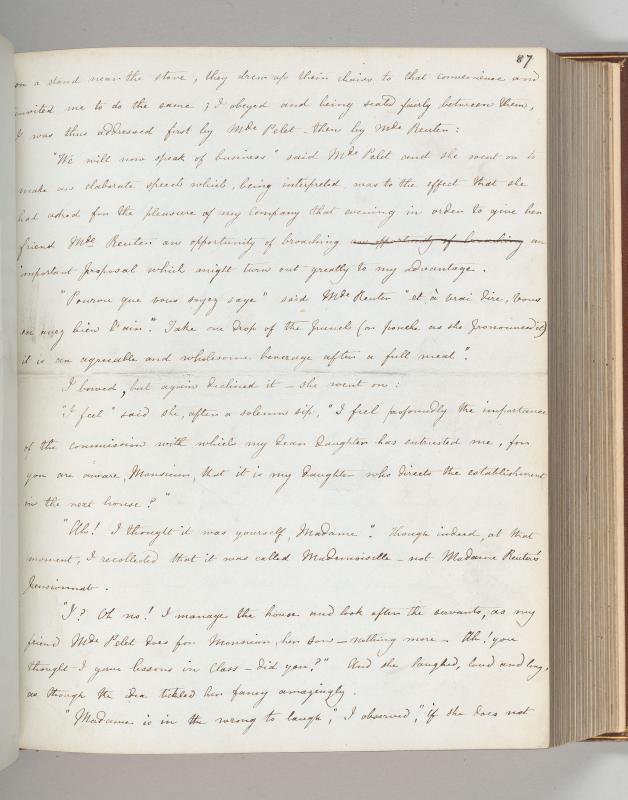 87
on a stand near the stove, they drew up their chairs to that convenience and
invited me to do the same; I obeyed and being seated fairly between them,
I was thus addressed first by Mde Pelet – then by Mde Reuter:
"We will now speak of business" said Mde Pelet and she went on to
make an elaborate speech which, being interpreted, was to the effect that she
had asked for the pleasure of my company that evening in order to give her
friend Mde Reuter an opportunity of broaching an opportunity of broaching an
important proposal which might turn out greatly to my advantage.
"Pourvu que vous soyez sage" said Mde Reuter "et, à vrai dire, vous
en avez bien l'air". Take one drop of the punch (or ponche as she pronounced it)
it is an agreeable and wholesome beverage after a full meal".
I bowed, but again declined it – she went on:
"I feel" said she, after a solemn sip, "I feel profoundly the importance
of the commission with which my dear Daughter has entrusted me, for
you are aware, Monsieur, that it is my Daughter who directs the establishment
in the next house?"
"Ah! I thought it was yourself, Madame". Though indeed, at that
moment, I recollected that it was called Mademoiselle – not Madame Reuter's
Pensionnat.
"I? Oh no! I manage the house and look after the servants, as my
friend Mde Pelet does for Monsieur, her son – nothing more – Ah! you
thought I gave lessons in Class – did you?" And she laughed, loud and long,
as though the idea tickled her fancy amazingly.
"Madame is in the wrong to laugh", I observed, "if she does not